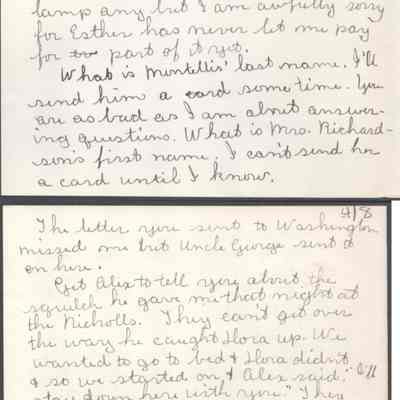 lamp any but I am awfully sorry
for Esther has never let me pay
for part of it yet.
What is Montellis' last name. I'll
send him a card some time. You
are as bad as I am about answer-
ing questions. What is Mrs. Richard-
son's first name. I can't send her
a card until I know.
4/8
The letter you sent to Washington
missed me but Uncle George sent it
on here.
Get Alex to tell you about the
squelch he gave me that night at
the Nicholls. They can't get over
the way he caught Flora up. We
wanted to go to bed & Flora didn't
& so we started on & Alex said, "I'll
stay down here with you." They